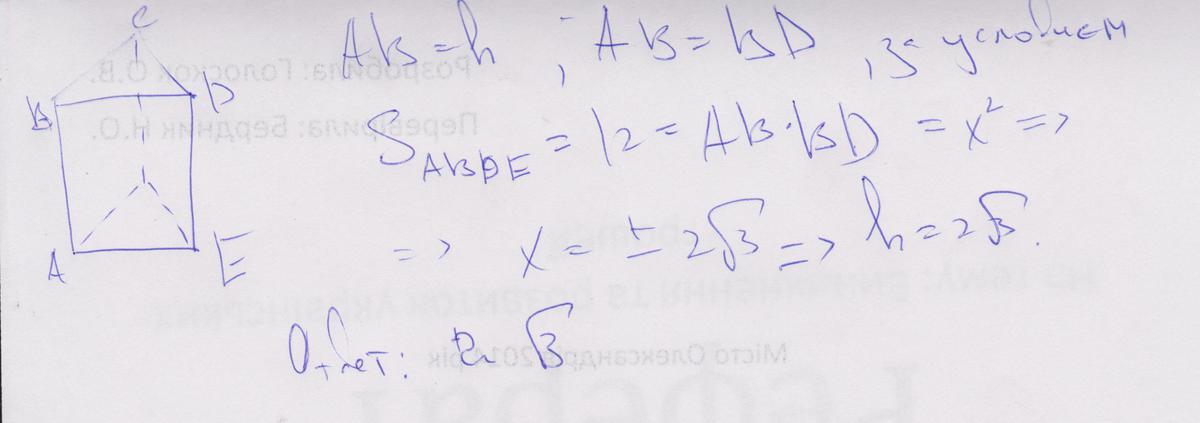 C
B D
A E
AB = h ; AB = BD , за условием
S ABDE = 12 = AB · BD = x² =>
=> x = ± 2√3 => h = 2√3.
Ответ: 2√3
Розробила: Голоскок О.В.
Перевірила: Бердник Н.О.
на тему: виникнення та розвиток українських
Місто Олександрія 2014 рік
Реферат